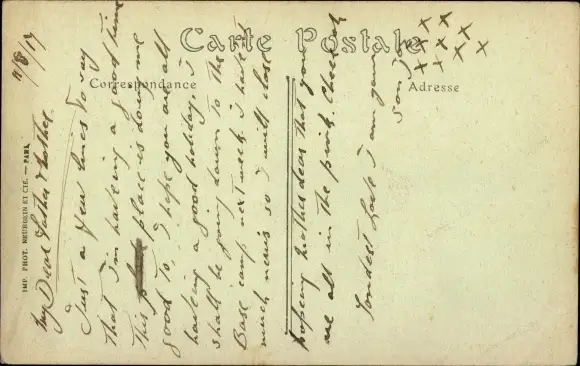 Carte Postale
Correspondance
Adresse
IMP. PHOT. NEURDEIN ET CIE. — PARIS
11/8/17
My Dear Father & Mother
Just a few lines to say
that I'm having a good time
This place is doing me
good to, I hope you are all
having a good holiday, I
shall be going down to the
Base camp next week. I have
much news so I will close
hopeing Mother dear that you
are all in the pink. Cheer oh
Fondest Love I am your
Son
x x x
x x x
x x x x